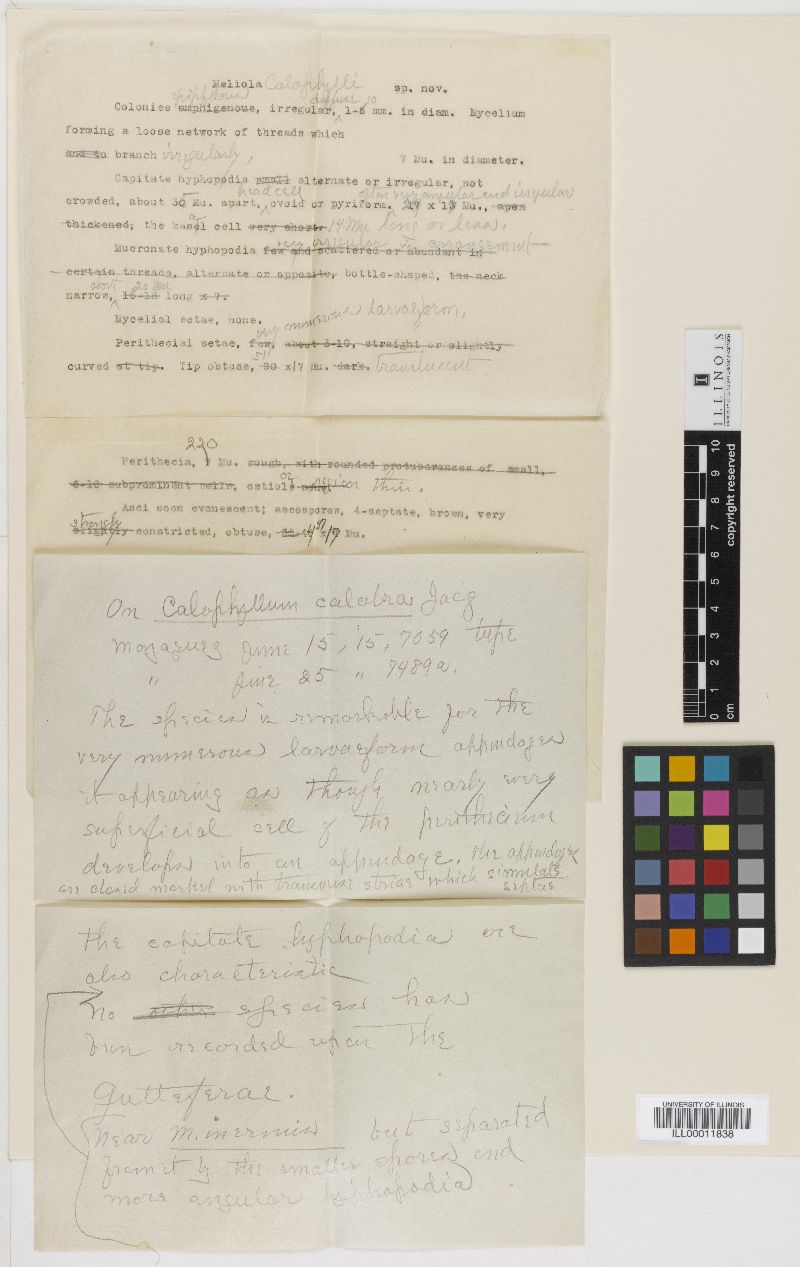 Meliola Calophylli sp. nov.
epiphyllous dense 10
Colonies amphigenous, irregular, 1-5 mm. in diam. Mycelium
forming a loose network of threads which
and to branch irregularly, 7 Mu. in diameter.
Capitate hyphopodia small alternate or irregular, not
head cell often very angular and irregular
crowded, about 30 Mu. apart, ovoid or pyriform. 17 x 17 Mu., apex
thickened, the basal cell very short. 14 Mu long or less.
very irregular in arrangement
Mucronate hyphopodia few and scattered or abundant in
certain threads, alternate or opposite, bottle-shaped, the neck
about 20 Mu
narrow, 16-18 long x 7.
Mycelial setae, none.
very numerous larvaeform,
Perithecial setae, few, about 3-10, straight or slightly
curved at tip. Tip obtuse, 90 x 17 Mu. dark. translucent
220
Perithecia, Mu. rough, with rounded protuberances of small,
6-10 subprominent cells, ostiole thin.
Asci soon evanescent; ascospores, 4-septate, brown, very
strongly
slightly constricted, obtuse, 44 x 17 Mu.
On Calophyllum calabra Jacq
Mayaguez June 15, '15, 7059 type
" June 25 " 7489a.
The species is remarkable for the
very numerous larvaeform appendages
it appearing as though nearly every
superficial cell of the perithecium
develops into an appendage. The appendages
are closed marked with transverse striae which simulate
septae
The capitate hyphopodia are
also characteristic
No other species has
been recorded upon the
Gutteferae.
Near M. inermis but separated
from it by the smaller spores and
more angular hyphopodia.
ILLINOIS
0 1 2 3 4 5 6 7 8 9 10
cm
copyright reserved
UNIVERSITY OF ILLINOIS
ILL00011838